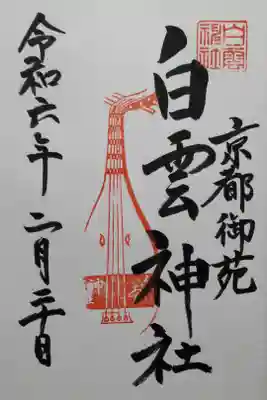 京都御苑
白雲神社
令和六年 二月二十日
白雲
神社